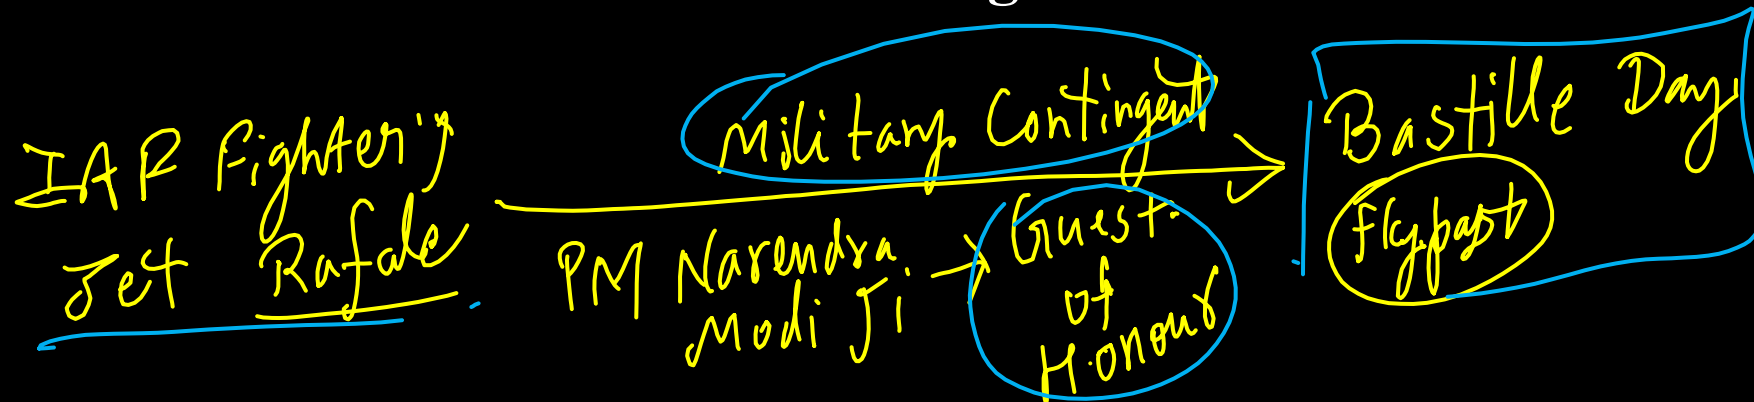 IAF Fighter's
Jet Rafale
Military Contingent
PM Narendra
Modi Ji
Guest
of
Honour
Bastille Day
Flypast